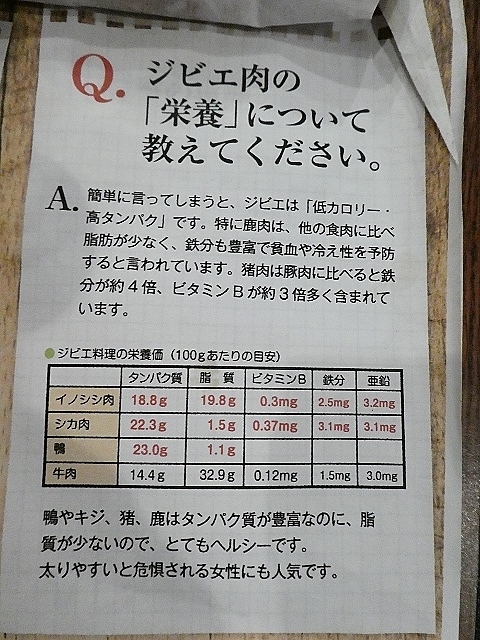 Q. ジビエ肉の
「栄養」について
教えてください。
A. 簡単に言ってしまうと、ジビエは「低カロリー・
高タンパク」です。特に鹿肉は、他の食肉に比べ
脂肪が少なく、鉄分も豊富で貧血や冷え性を予防
すると言われています。猪肉は豚肉に比べると鉄
分が約4倍、ビタミンBが約3倍多く含まれて
います。
●ジビエ料理の栄養価（100gあたりの目安）
タンパク質 脂 質 ビタミンB 鉄分 亜鉛
イノシシ肉 18.8g 19.8g 0.3mg 2.5mg 3.2mg
シカ肉 22.3g 1.5g 0.37mg 3.1mg 3.1mg
鴨 23.0g 1.1g
牛肉 14.4g 32.9g 0.12mg 1.5mg 3.0mg
鴨やキジ、猪、鹿はタンパク質が豊富なのに、脂
質が少ないので、とてもヘルシーです。
太りやすいと危惧される女性にも人気です。